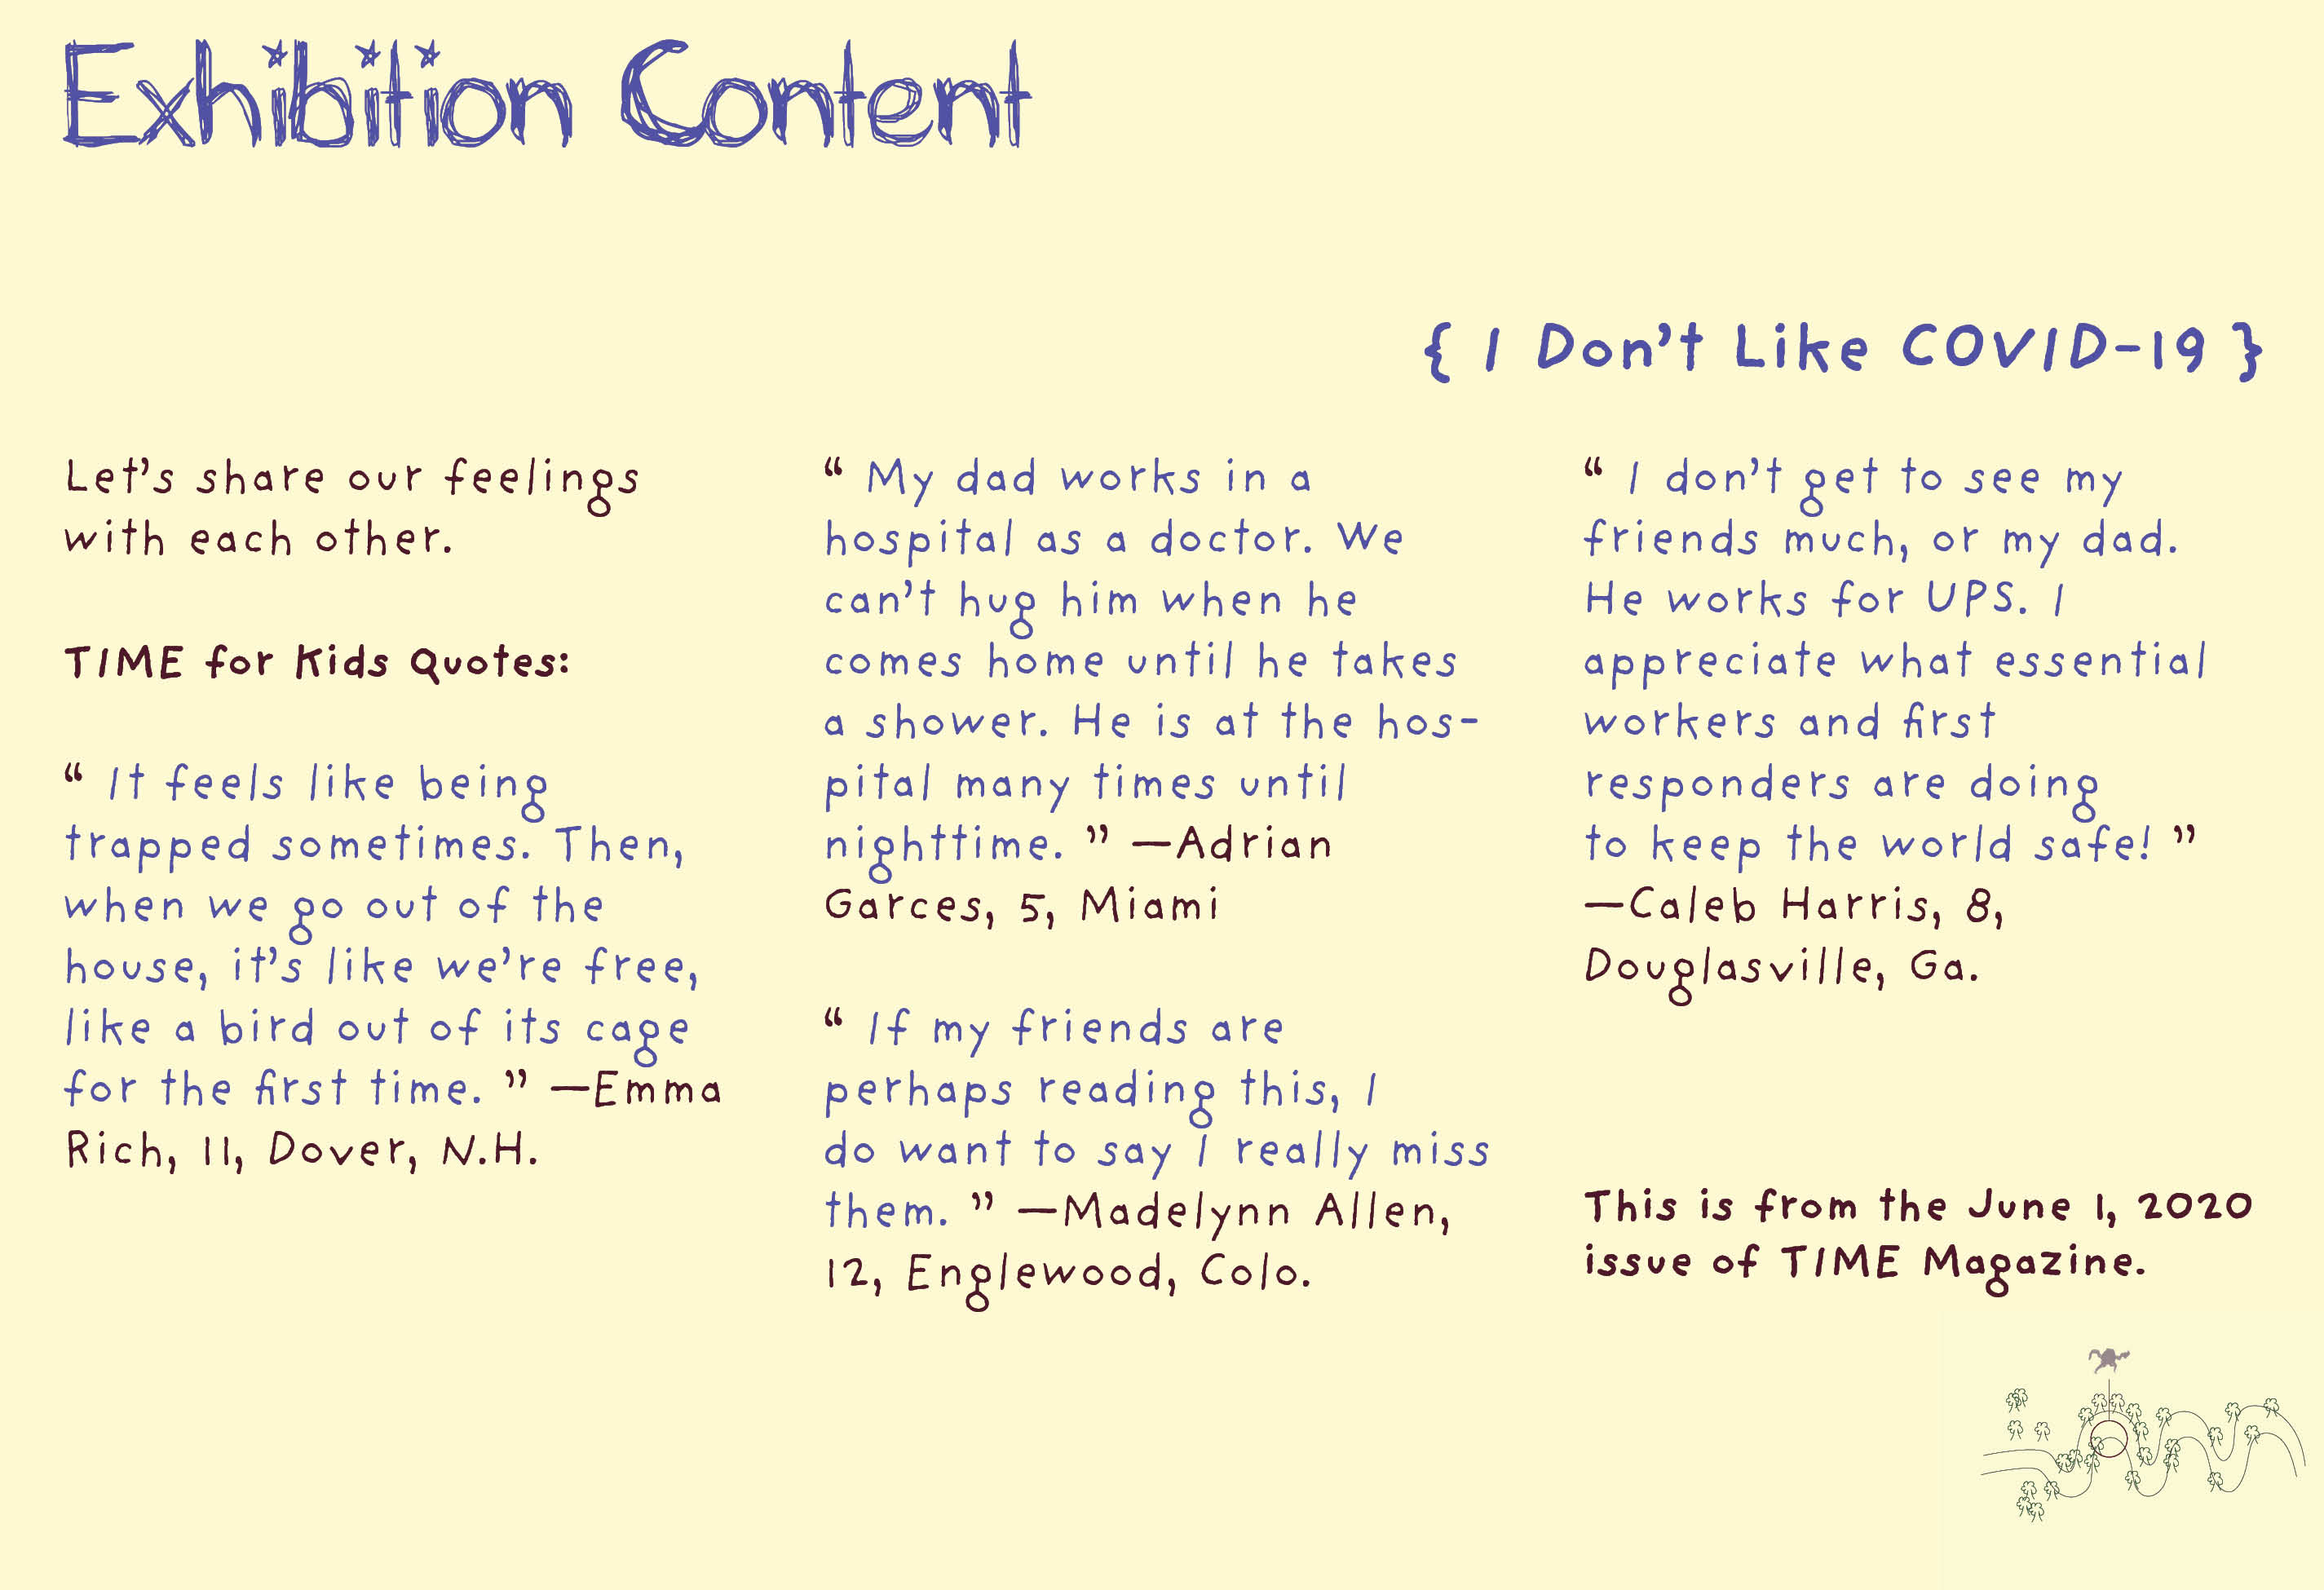 Exhibition Content
{ I Don't Like COVID-19 }
Let's share our feelings
with each other.
TIME for Kids Quotes:
“ It feels like being
trapped sometimes. Then,
when we go out of the
house, it's like we're free,
like a bird out of its cage
for the first time. ” —Emma
Rich, 11, Dover, N.H.
“ My dad works in a
hospital as a doctor. We
can't hug him when he
comes home until he takes
a shower. He is at the hos-
pital many times until
nighttime. ” —Adrian
Garces, 5, Miami
“ If my friends are
perhaps reading this, I
do want to say I really miss
them. ” —Madelynn Allen,
12, Englewood, Colo.
“ I don't get to see my
friends much, or my dad.
He works for UPS. I
appreciate what essential
workers and first
responders are doing
to keep the world safe! ”
—Caleb Harris, 8,
Douglasville, Ga.
This is from the June 1, 2020
issue of TIME Magazine.